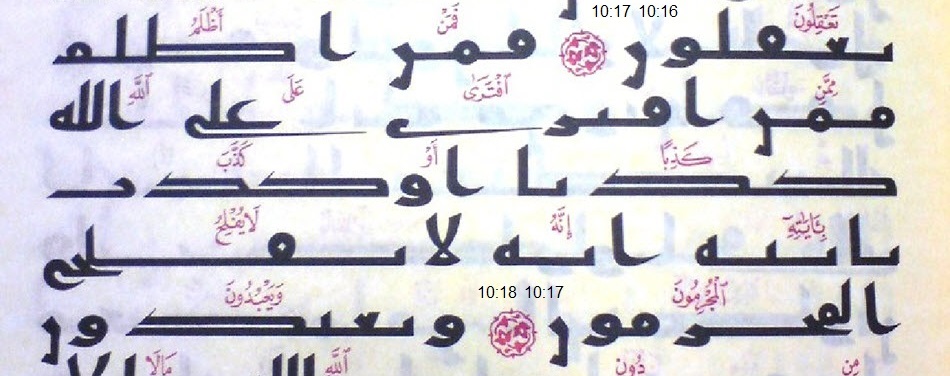 10:17 10:16
تَعْقِلُونَ فَمَنْ أَظْلَمُ
تعقلون فمن اظلم
مِمَّنِ ٱفْتَرَىٰ عَلَى ٱللَّهِ
ممن افترى على الله
كَذِبًا أَوْ كَذَّبَ
كذبا او كذب
بِـَٔايَٰتِهِۦٓ إِنَّهُۥ لَا يُفْلِحُ
بايته انه لا يفلح
10:18 10:17
ٱلْمُجْرِمُونَ وَيَعْبُدُونَ
المجرمون ويعبدون
مِن دُونِ ٱللَّهِ مَالَا